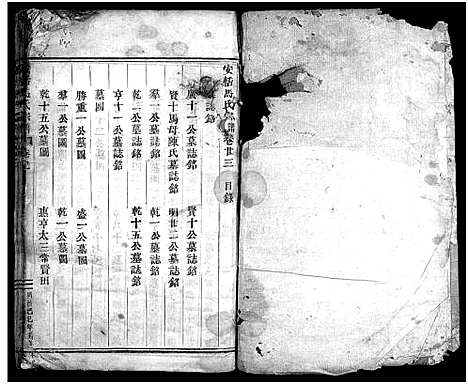 安括馬氏宗譜卷廿三 目錄
墓誌銘
廣十一公墓誌銘 賢十公墓誌銘
賢十馬母陳氏墓誌銘 明廿二公墓誌銘
羣一公墓誌銘 乾一公墓誌銘
乾二公墓誌銘 乾十五公墓誌銘
亨十一公墓誌銘
墓圖
勝重一公墓圖 盛一公墓圖
羣一公墓圖 乾一公墓圖
乾十五公墓圖 惠亨太三常賢田